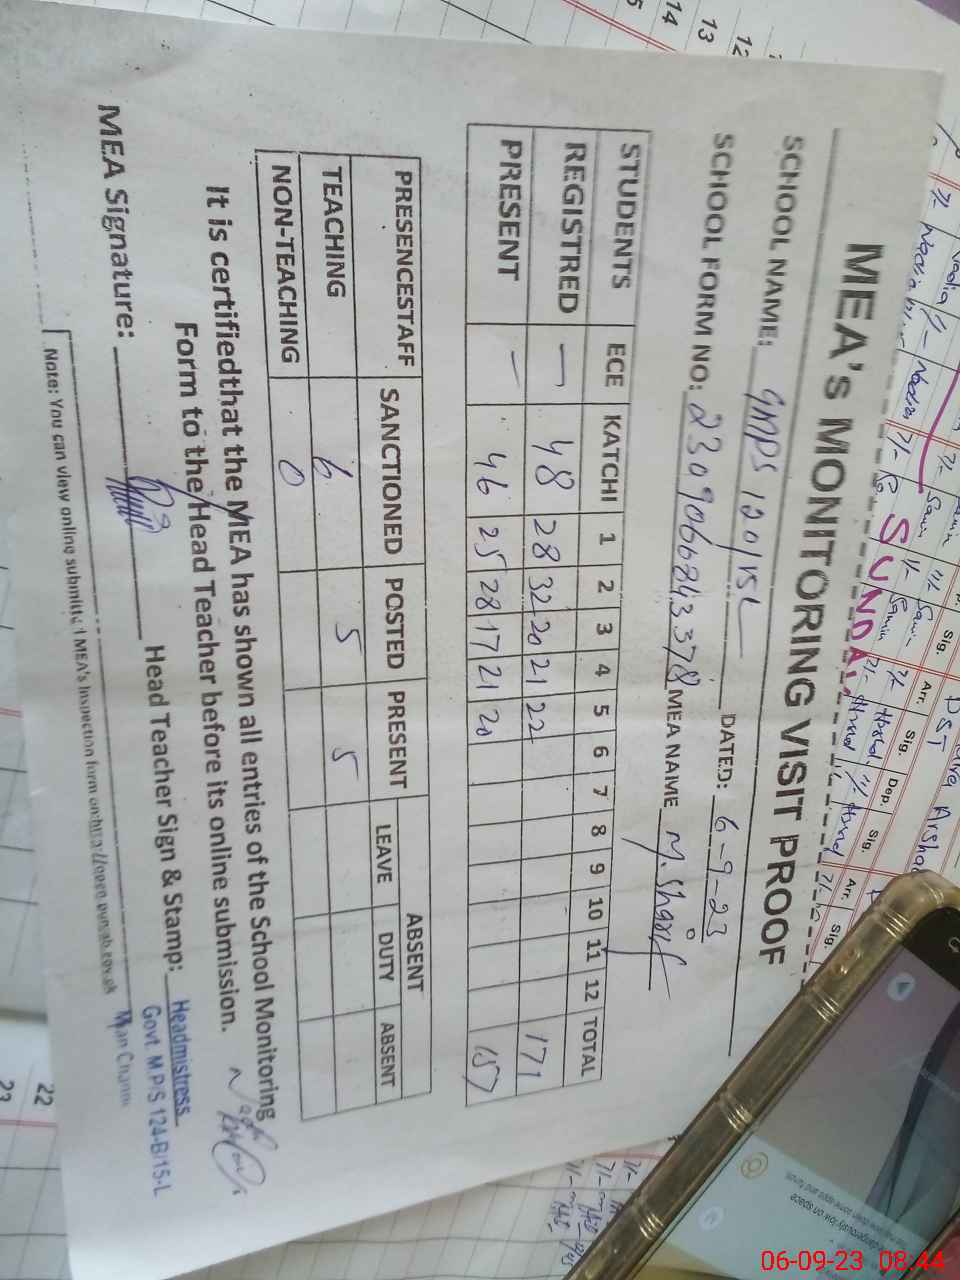 MEA's MONITORING VISIT PROOF
SCHOOL NAME: GMPS 120/15L DATED: 6-9-23
SCHOOL FORM NO: 2309066843378 MEA NAME M. Sharif
STUDENTS ECE KATCHI 1 2 3 4 5 6 7 8 9 10 11 12 TOTAL
REGISTRED — 48 28 32 20 21 22 171
PRESENT — 46 25 28 17 21 20 157
PRESENCESTAFF SANCTIONED POSTED PRESENT ABSENT
LEAVE DUTY ABSENT
TEACHING 6 5 5
NON-TEACHING 0
It is certifiedthat the MEA has shown all entries of the School Monitoring
Form to the Head Teacher before its online submission.
MEA Signature: Head Teacher Sign & Stamp: Headmistress
Govt. M.P/S 124-B/15-L
Mian Channu
Note: You can view online submitted MEA's Inspection form on:http://open.punjab.gov.pk
SUNDAY
Sig. Arr. Sig. Dep. Sig. Arr. Sig.
12
13
14
22
23
dangerously low on space
06-09-23 08:44